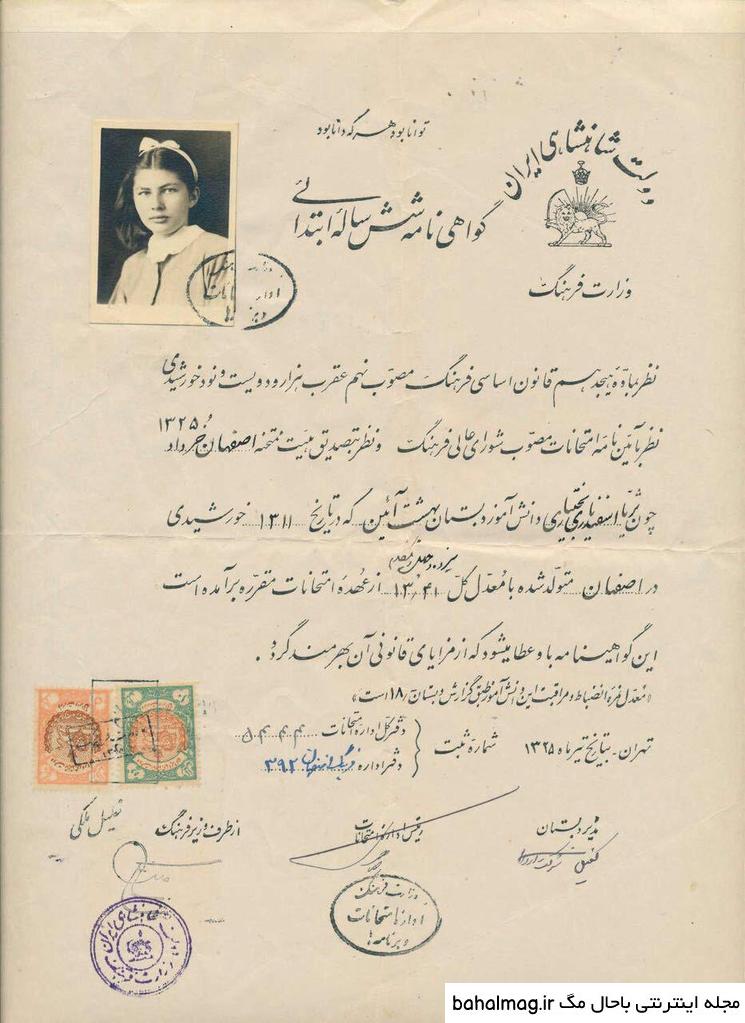 توانا بود هر که دانا بود
دولت شاهنشاهی ایران
گواهی نامه شش ساله ابتدائی
وزارت فرهنگ
نظر بمادّه هیجدهم قانون اساسی فرهنگ مصوّب نهم عقرب هزار و دویست و نود خورشیدی
نظر بآئین نامه امتحانات مصوّب شورای عالی فرهنگ و نظر بتصدیق هیئت ممتحنه اصفهان خرداد ۱۳۲۵
چون ثریا اسفندیاری بختیاری دانش آموز دبستان بهشت آئین که در تاریخ ۱۳۱۱ خورشیدی
در اصفهان متولّد شده با مُعدّل کلّ ۱۳٫۴۱ از عُهدهٔ امتحانات مقرّره برآمده است
این گواهینامه باو عطا میشود که از مزایای قانونی آن بهره مند گردد.
«معدل نمره انضباط و مراقبت این دانش آموز طبق گزارش دبستان ۱۸/ است»
تهران - بتاریخ تیر ماه ۱۳۲۵ شمارهٔ ثبت
دفتر کل اداره امتحانات ۵۴۴۴
دفتر اداره فرهنگ اصفهان ۳۹۲
مدیر دبستان
رئیس اداره کل امتحانات
از طرف وزیر فرهنگ
کفیل
وزارت فرهنگ
اداره امتحانات
و برنامه ها
دولت شاهنشاهی ایران
وزارت فرهنگ
مجله اینترنتی باحال مگ bahalmag.ir